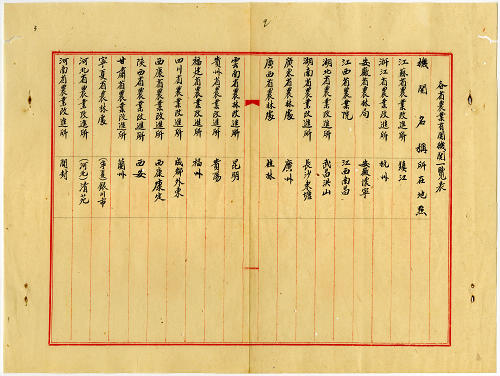 各省農業有關機關一覽表
機關名稱 所在地點
江蘇省農業改進所 鎮江
浙江省農業改進所 杭州
安徽省農林局 安徽懷寧
江西省農業院 江西南昌
湖北省農業改進所 武昌洪山
湖南省農業改進所 長沙東塘
廣東省農林處 廣州
廣西省農林處 桂林
2
雲南省農林改進所 昆明
貴州省農業改進所 貴陽
福建省農業改進所 福州
四川省農業改進所 成都外東
西康省農業改進所 西康康定
陝西省農業改進所 西安
甘肅省農業改進所 蘭州
寧夏省農林處 (寧夏)銀川市
河北省農業改進所 (河北)清苑
河南省農業改進所 開封
3